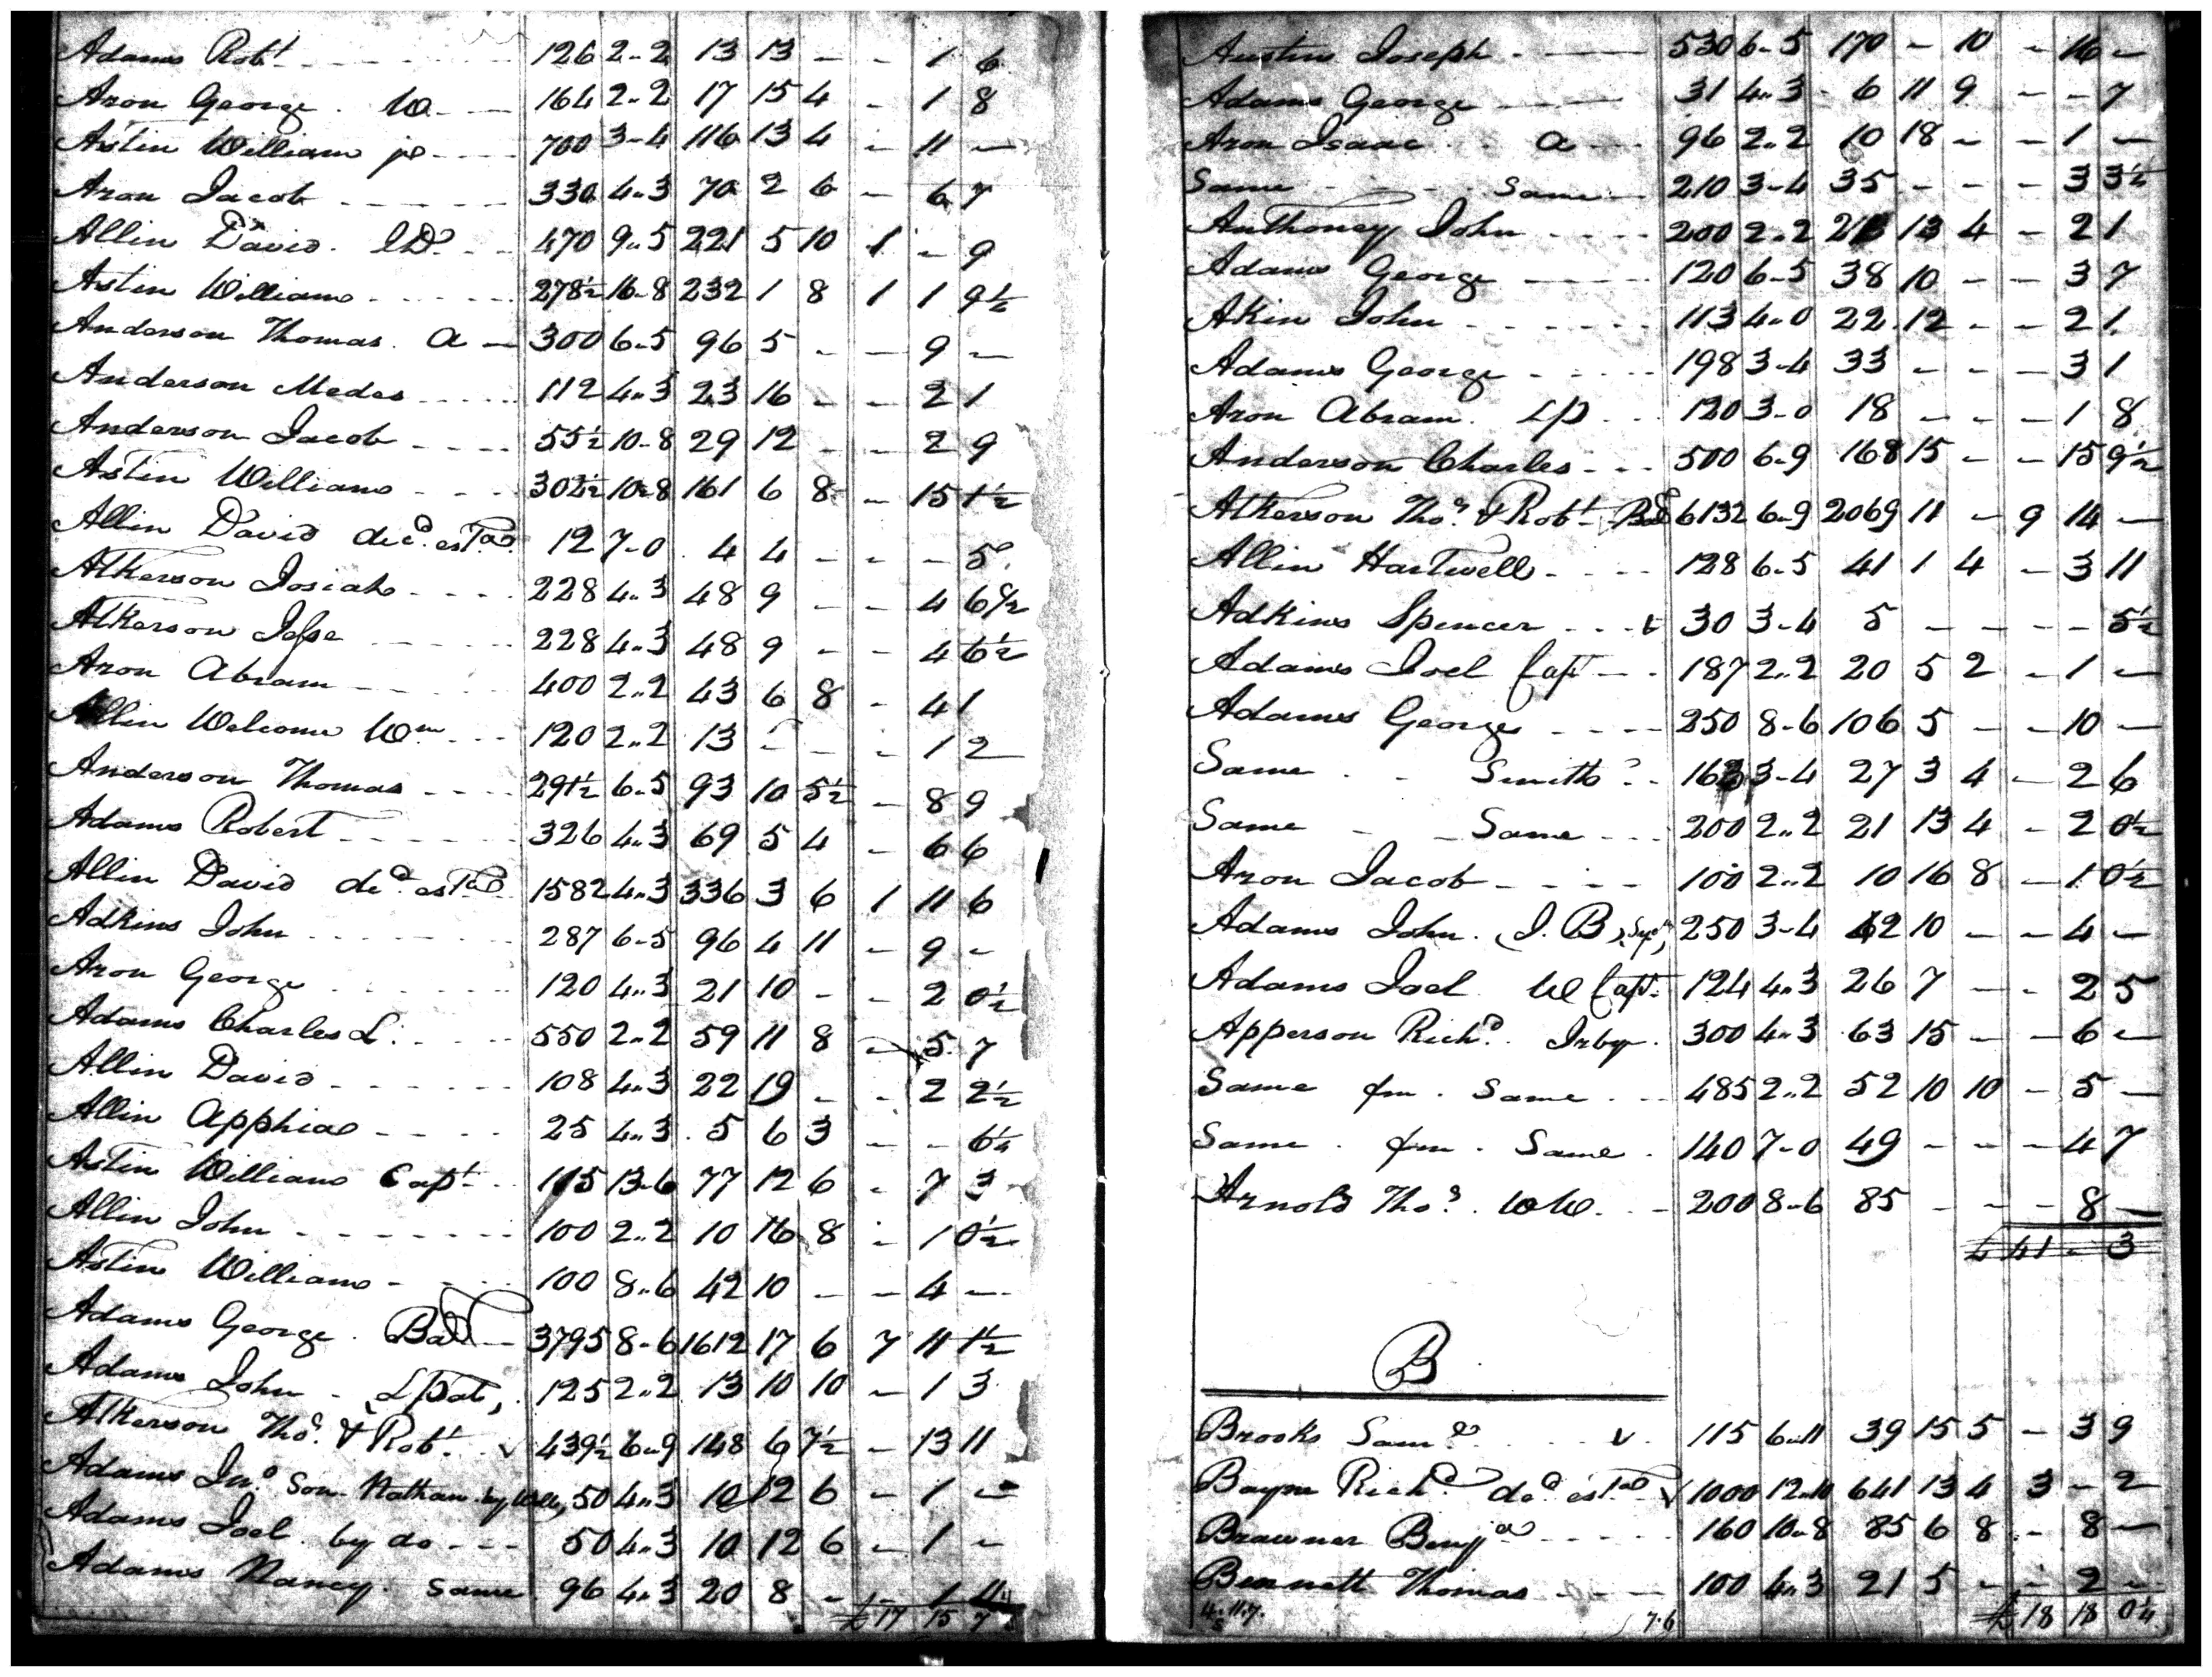 Adams Robt 126 2-2 13 13 - - 1 6
Aron George. W. 164 2-2 17 15 4 - 1 8
Astin William jr 700 3-4 116 13 4 - 11 -
Aron Jacob 330 4-3 70 2 6 - 6 7
Allin David. LD. 470 9-5 221 5 10 1 - 9
Astin William 278½ 16-8 232 1 8 1 1 9½
Anderson Thomas. A 300 6-5 96 5 - - 9 -
Anderson Medes 112 4-3 23 16 - - 2 1
Anderson Jacob 55½ 10-8 29 12 - - 2 9
Astin William 302½ 10-8 161 6 8 - 15 1½
Allin David decd. estate 12 7-0 4 4 - - - 5
Atkerson Josiah 228 4-3 48 9 - - 4 6½
Atkerson Jesse 228 4-3 48 9 - - 4 6½
Aron Abram 400 2-2 43 6 8 - 4 1
Allin Welcome Wm 120 2-2 13 - - - 1 2
Anderson Thomas 291½ 6-5 93 10 5½ - 8 9
Adams Robert 326 4-3 69 5 4 - 6 6
Allin David decd. estate 1582 4-3 336 3 6 1 11 6
Adkins John 287 6-5 96 4 11 - 9 -
Aron George 120 4-3 21 10 - - 2 0½
Adams Charles L. 550 2-2 59 11 8 - 5 7
Allin David 108 4-3 22 19 - - 2 2½
Allin Apphia 25 4-3 5 6 3 - - 6½
Astin William Capt. 115 13-6 77 12 6 - 7 3
Allin John 100 2-2 10 16 8 - 1 0½
Astin William 100 8-6 42 10 - - 4 -
Adams George. Ball 3795 8-6 1612 17 6 7 11 1½
Adams John 125 2-2 13 10 10 - 1 3
Atkerson Thos. & Robt. v 439½ 6-9 148 6 7½ - 13 11
Adams Jno. Son Nathan by Will, 50 4-3 10 12 6 - 1 -
Adams Joel by do 50 4-3 10 12 6 - 1 -
Adams Nancy. Same 96 4-3 20 8 - - 1 11
£ 17 15 7
Austin Joseph 530 6-5 170 - 10 - 16 -
Adams George 31 4-3 6 11 9 - - 7
Aron Isaac A 96 2-2 10 18 - - 1 -
Same Same 210 3-4 35 - - - 3 3½
Anthoney John 200 2-2 21 13 4 - 2 1
Adams George 120 6-5 38 10 - - 3 7
Akin John 113 4-0 22 12 - - 2 1
Adams George 198 3-4 33 - - - 3 1
Aron Abram. LP 120 3-0 18 - - - 1 8
Anderson Charles 500 6-9 168 15 - - 15 9½
Atkerson Thos. & Robt. 6132 6-9 2069 11 - 9 14 -
Allin Hartwell 128 6-5 41 1 4 - 3 11
Adkins Spencer v 30 3-4 5 - - - - 5½
Adams Joel Capt 187 2-2 20 5 2 - 1 -
Adams George 250 8-6 106 5 - - 10 -
Same Smiths 163 3-4 27 3 4 - 2 6
Same Same 200 2-2 21 13 4 - 2 0½
Aron Jacob 100 2-2 10 16 8 - 1 0½
Adams John. (J. B) 250 3-4 42 10 - - 4 -
Adams Joel W Capt. 124 4-3 26 7 - - 2 5
Apperson Richd. Irby 300 4-3 63 15 - - 6 -
Same fm. Same 485 2-2 52 10 10 - 5 -
Same fm. Same 140 7-0 49 - - - 4 7
Arnold Thos. W W. 200 8-6 85 - - - 8 -
£ 41 - 3
B
Brooks Saml. v 115 6-11 39 15 5 - 3 9
Bayne Richd. decd. estate v 1000 12-10 641 13 4 3 - 2
Brawner Benja 160 10-8 85 6 8 - 8 -
Bennett Thomas 100 4-3 21 5 - - 2 -
4.11.7. 7.6 £ 18 18 0¼